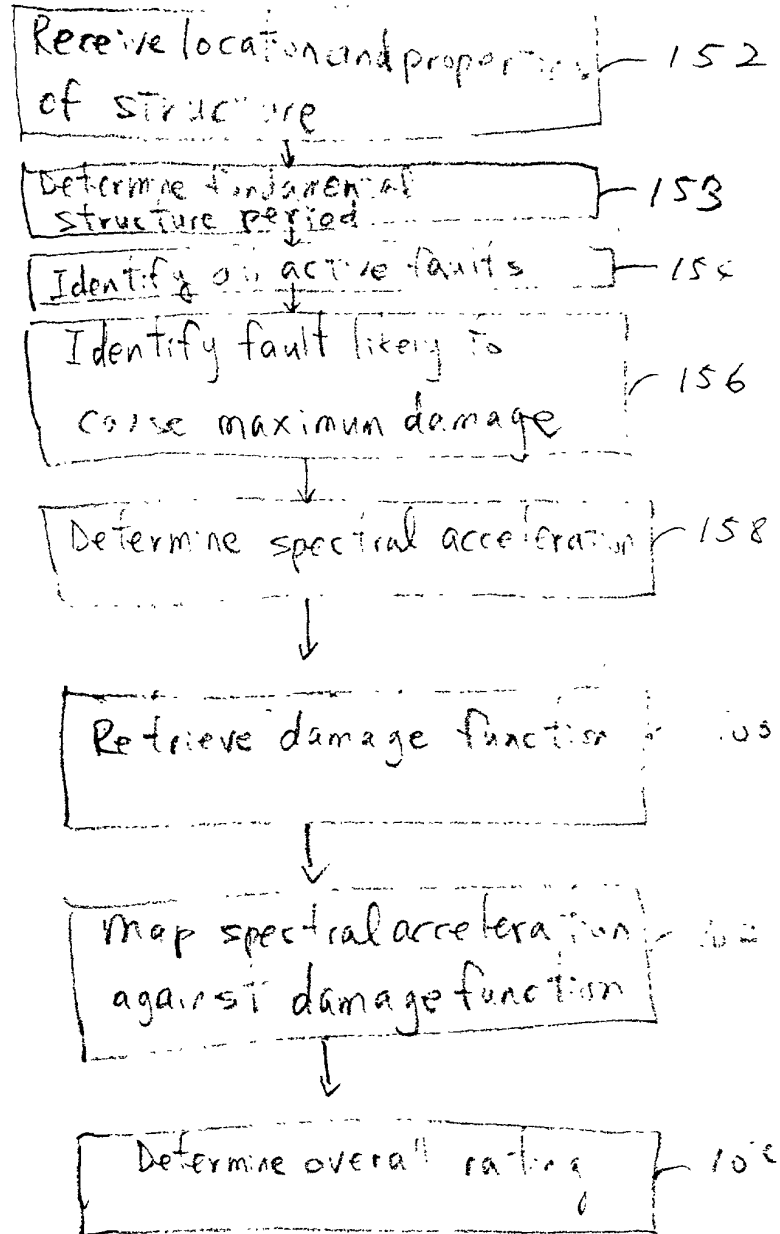 Receive location and properties 152
of structure
Determine fundamental 153
structure period
Identify all active faults
Identify fault likely to
cause maximum damage 156
Determine spectral acceleration 158
Retrieve damage function
Map spectral acceleration
against damage function
Determine overall rating